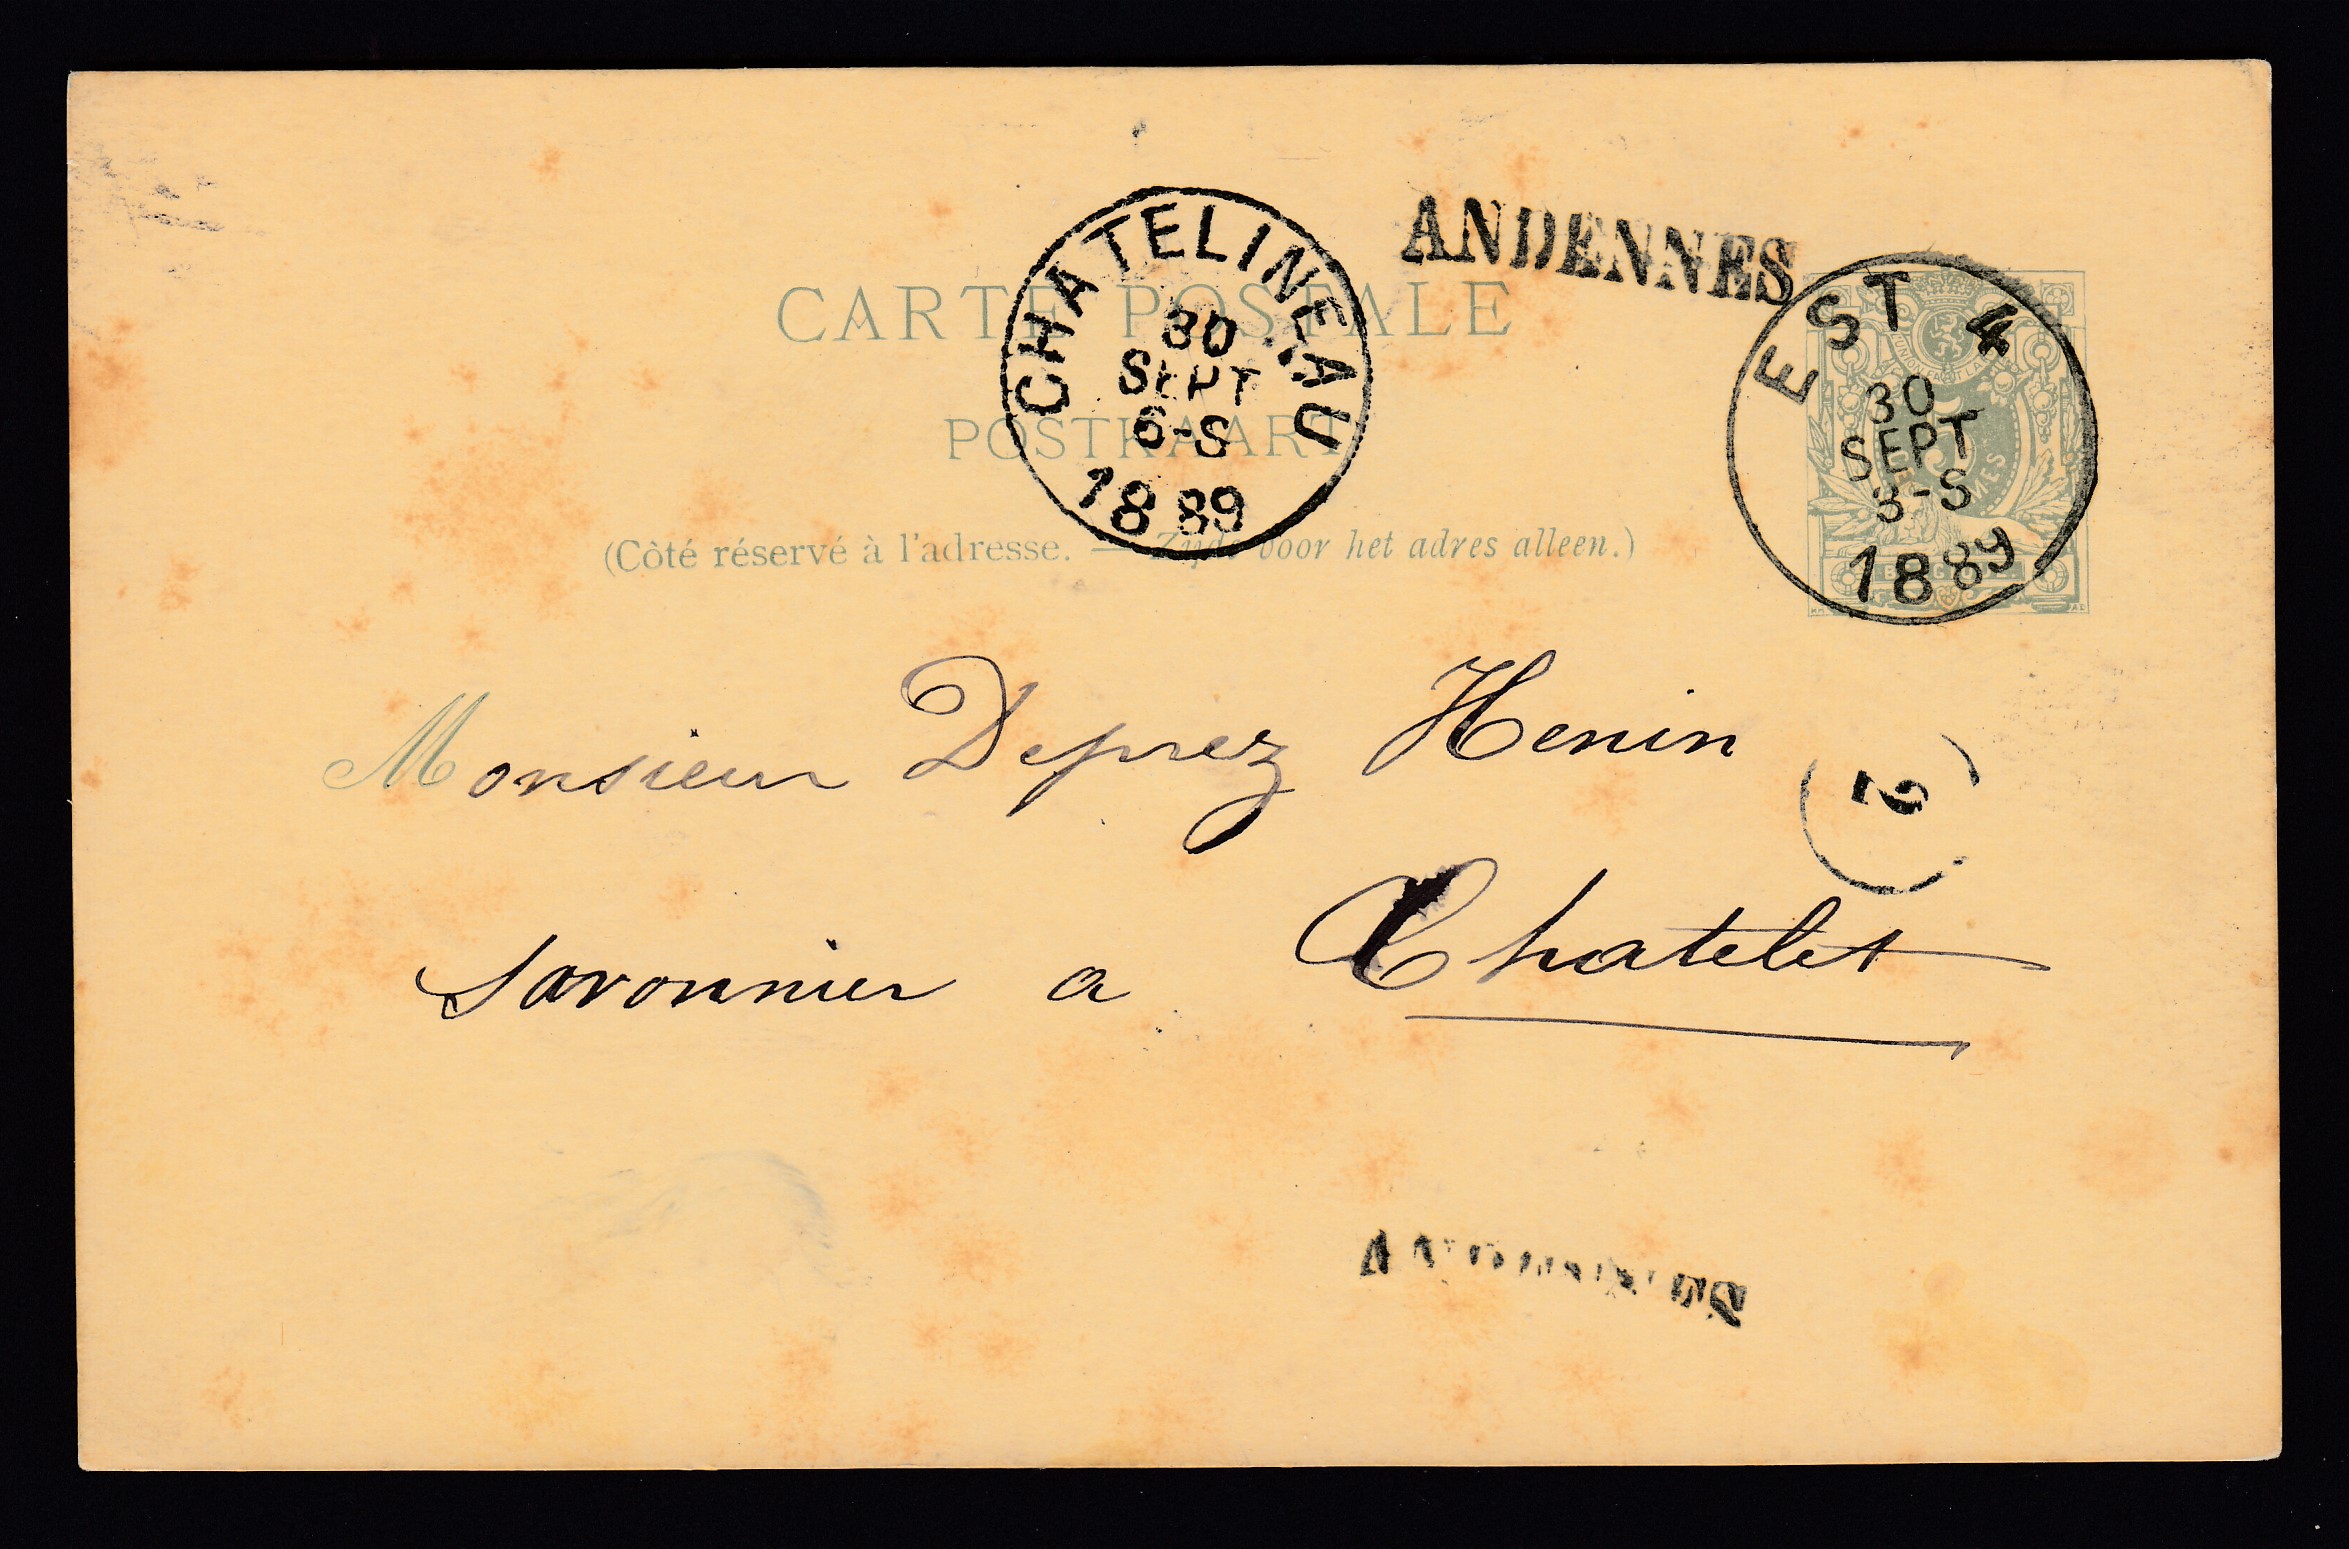 ANDENNES
CHATELINEAU
30
SEPT
6-S
1889
EST 4
30
SEPT
3-S
1889
5
CARTE POSTALE
POSTKAART
(Côté réservé à l'adresse. — Zijde voor het adres alleen.)
Monsieur Deprez Henin
savonnier a Chatelet